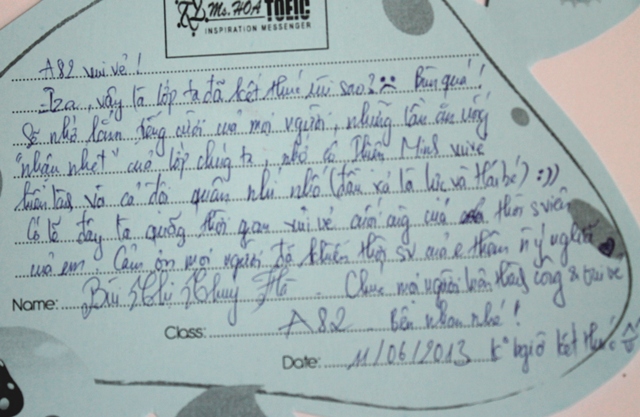 Ms. HOA TOEIC
INSPIRATION MESSENGER
A82 vui vẻ!
vậy là lớp ta đã kết thúc rồi sao? :( Buồn quá!
Sẽ nhớ lắm tiếng cười của mọi người, những lần ăn uống
"nhậu nhẹt" của lớp chúng ta, nhớ cô Minh vui vẻ
và cả đội quân nhí nhố (đầu là và bé) :))
Có lẽ đây là quãng thời gian vui vẻ cuối cùng của thời s viên
của em. Cảm ơn mọi người đã khiến thời sv của e thêm n ý nghĩa
Name: Bùi Thị Thuy Chúc mọi người luôn thành công & vui vẻ
Class: A82 Bên nhau nhé!
Date: 11/06/2013 k° bgiờ kết thúc